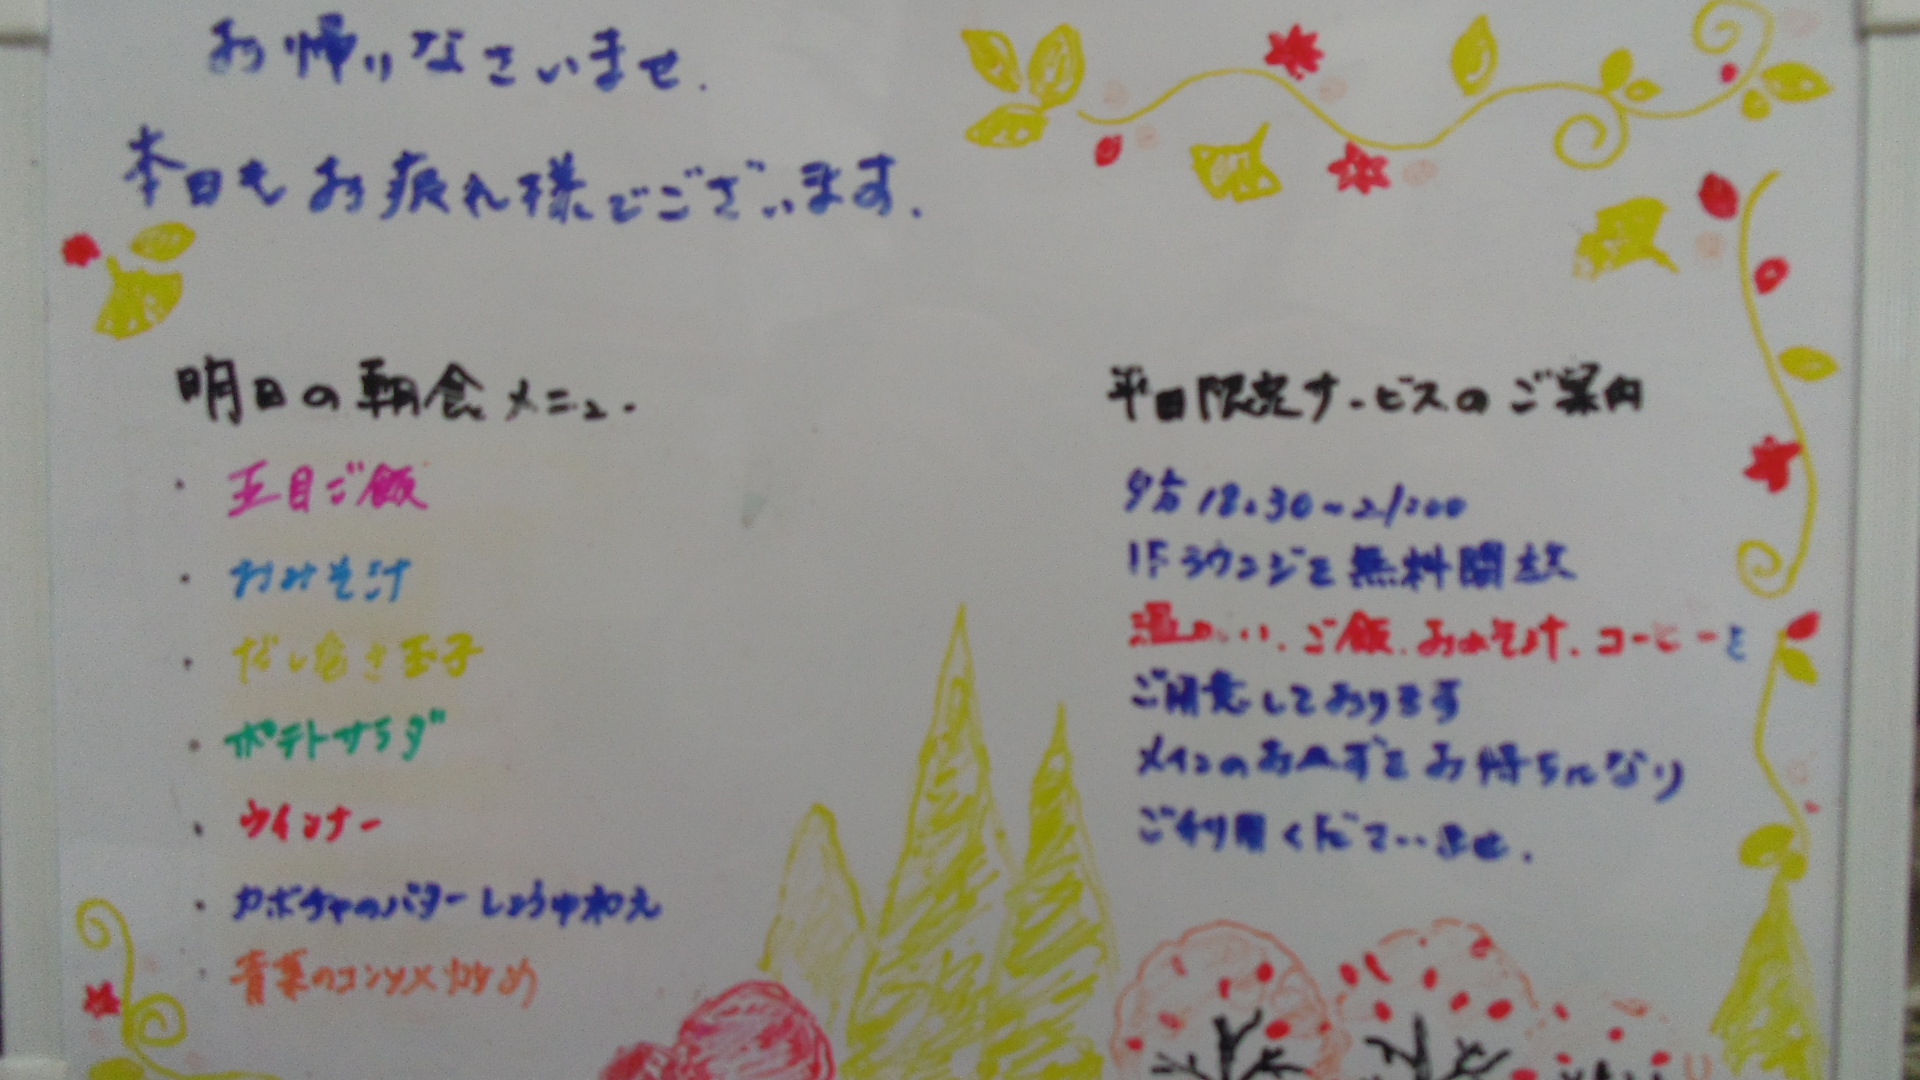 お帰りなさいませ.
本日もお疲れ様でございます.
明日の朝食メニュー
・五目ご飯
・おみそ汁
・だしまき玉子
・ポテトサラダ
・ウインナー
・カボチャのバターしょうゆ和え
・青菜のコンソメ炒め
平日限定サービスのご案内
夕方18:30~21:00
1Fラウンジを無料開放
温かい、ご飯、おみそ汁、コーヒーを
ご用意しております
メインのおかずをお持ちになり
ご利用くださいませ.